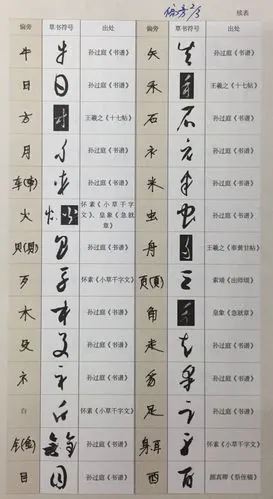 偏旁2/3 续表
偏旁 草书符号 出处 偏旁 草书符号 出处
牛 孙过庭《书谱》 矢 孙过庭《书谱》
日 孙过庭《书谱》 禾 王羲之《十七帖》
方 王羲之《十七帖》 石 孙过庭《书谱》
月 孙过庭《书谱》 衤 孙过庭《书谱》
车(車) 孙过庭《书谱》 米 孙过庭《书谱》
火 怀素《小草千字文》、皇象《急就章》 虫 孙过庭《书谱》
贝(貝) 怀素《小草千字文》 舟 王羲之《奉黄甘帖》
歹 怀素《小草千字文》 页(頁) 索靖《出师颂》
木 孙过庭《书谱》 角 皇象《急就章》
孙过庭《书谱》 走 孙过庭《书谱》
礻 孙过庭《书谱》 孙过庭《书谱》
白 怀素《小草千字文》 足 孙过庭《书谱》
孙过庭《书谱》 身耳 怀素《小草千字文》
目 孙过庭《书谱》 酉 颜真卿《祭侄稿》